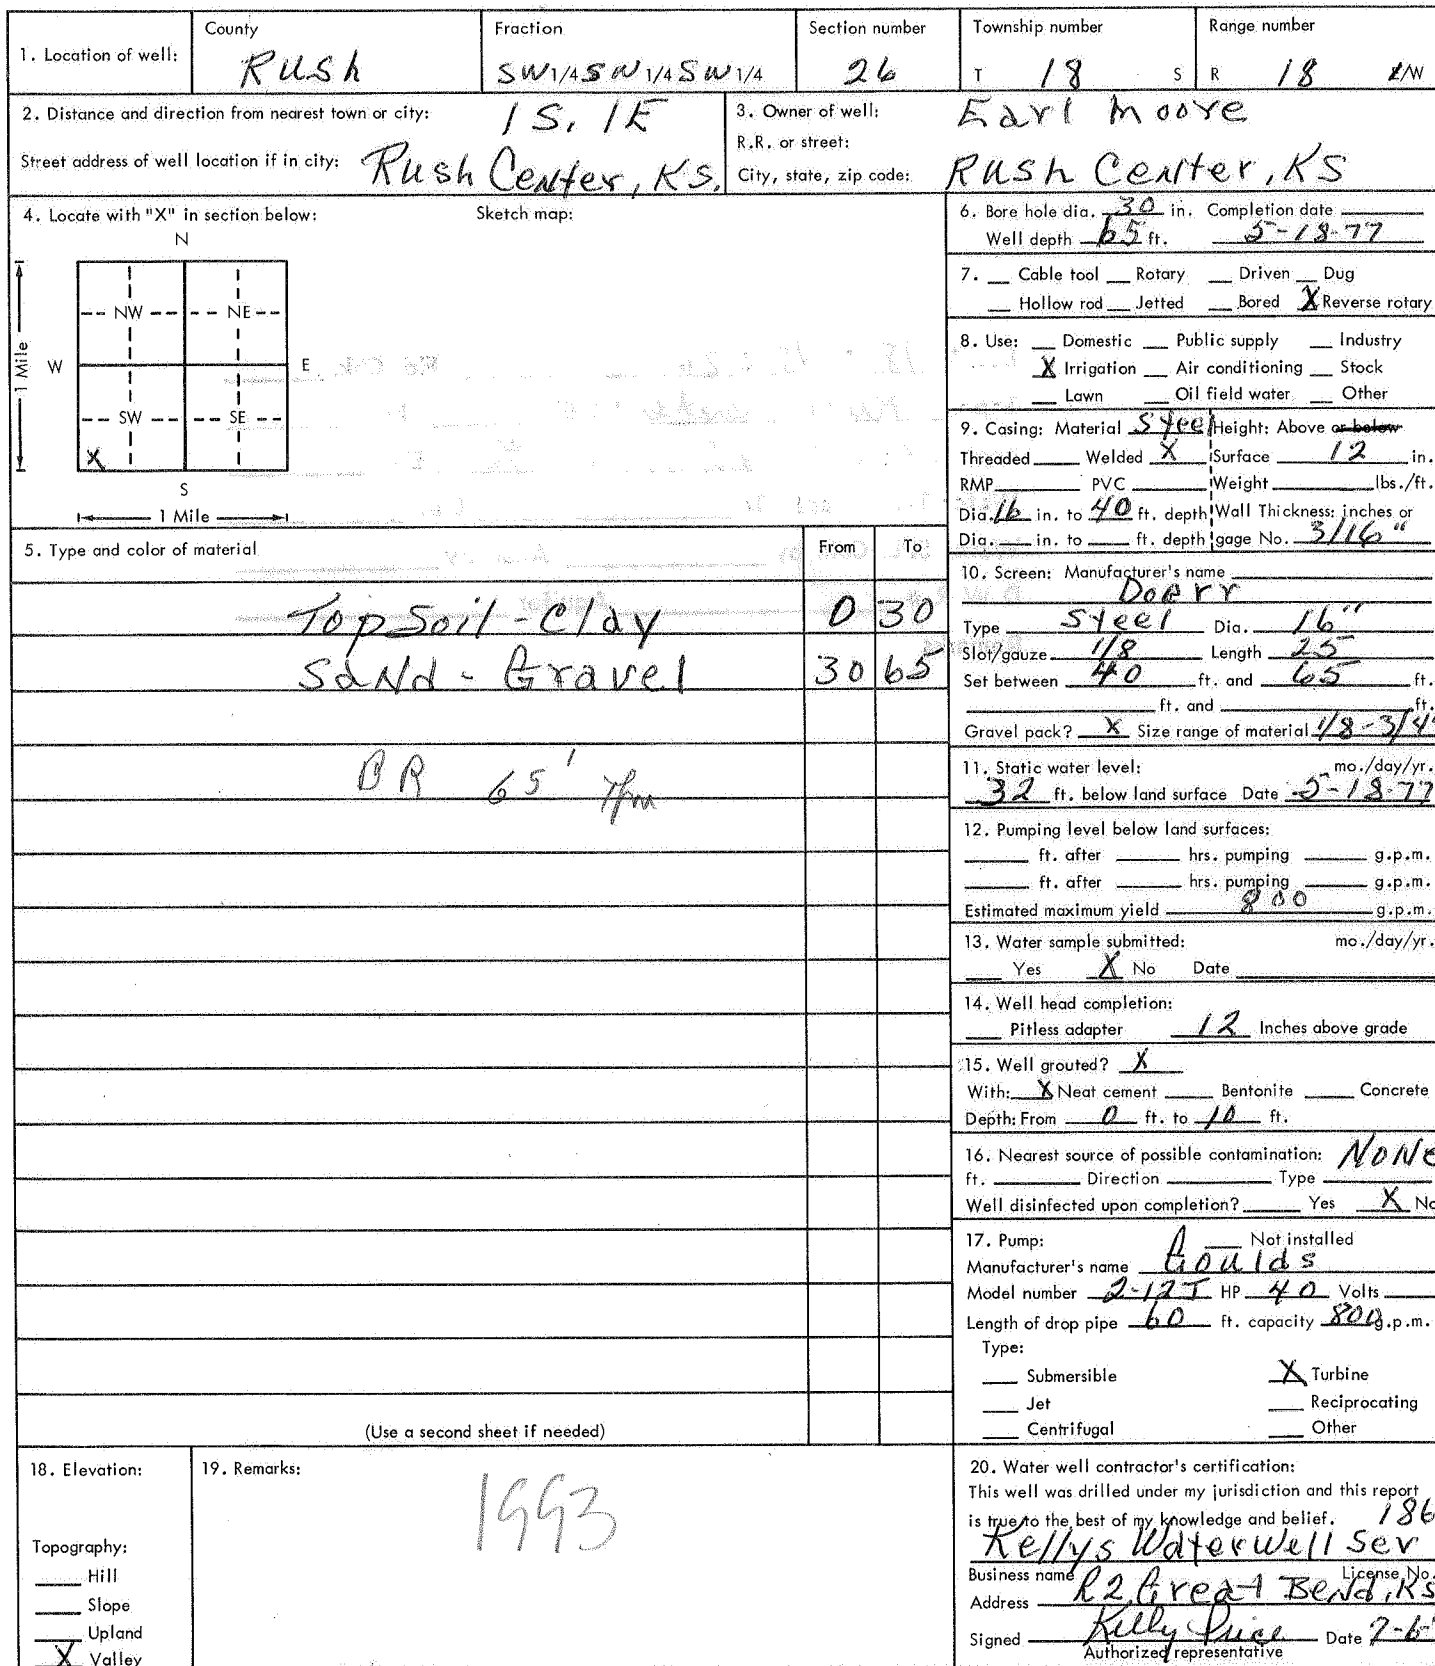 1. Location of well: County Rush Fraction SW 1/4 SW 1/4 SW 1/4 Section number 26 Township number T 18 S Range number R 18 E/W
2. Distance and direction from nearest town or city: 1 S, 1 E
Street address of well location if in city: Rush Center, KS.
3. Owner of well: Earl Moore
R.R. or street:
City, state, zip code: Rush Center, KS
4. Locate with "X" in section below: Sketch map:
N
NW NE
W E
1 Mile
SW SE
X
S
1 Mile
5. Type and color of material From To
Top Soil - Clay 0 30
Sand - Gravel 30 65
BR 65'
(Use a second sheet if needed)
6. Bore hole dia. 30 in. Completion date
Well depth 65 ft. 5-18-77
7. Cable tool Rotary Driven Dug
Hollow rod Jetted Bored X Reverse rotary
8. Use: Domestic Public supply Industry
X Irrigation Air conditioning Stock
Lawn Oil field water Other
9. Casing: Material Steel Height: Above or below
Threaded Welded X Surface 12 in.
RMP PVC Weight lbs./ft.
Dia. 16 in. to 40 ft. depth Wall Thickness: inches or
Dia. in. to ft. depth gage No. 3/16"
10. Screen: Manufacturer's name
Doerr
Type Steel Dia. 16"
Slot/gauze 1/8 Length 25
Set between 40 ft. and 65 ft.
ft. and ft.
Gravel pack? X Size range of material 1/8 - 3/4"
11. Static water level: mo./day/yr.
32 ft. below land surface Date 5-18-77
12. Pumping level below land surfaces:
ft. after hrs. pumping g.p.m.
ft. after hrs. pumping g.p.m.
Estimated maximum yield 800 g.p.m.
13. Water sample submitted: mo./day/yr.
Yes X No Date
14. Well head completion:
Pitless adapter 12 Inches above grade
15. Well grouted? X
With: X Neat cement Bentonite Concrete
Depth: From 0 ft. to 10 ft.
16. Nearest source of possible contamination: NONE
ft. Direction Type
Well disinfected upon completion? Yes X No
17. Pump: Not installed
Manufacturer's name Goulds
Model number 2-12J HP 40 Volts
Length of drop pipe 60 ft. capacity 800 g.p.m.
Type:
Submersible X Turbine
Jet Reciprocating
Centrifugal Other
18. Elevation:
Topography:
Hill
Slope
Upland
X Valley
19. Remarks:
1993
20. Water well contractor's certification:
This well was drilled under my jurisdiction and this report
is true to the best of my knowledge and belief. 186
Kellys Water Well Ser
Business name License No.
Address R2 Great Bend, KS
Signed Kelly Price Date 7-6-
Authorized representative